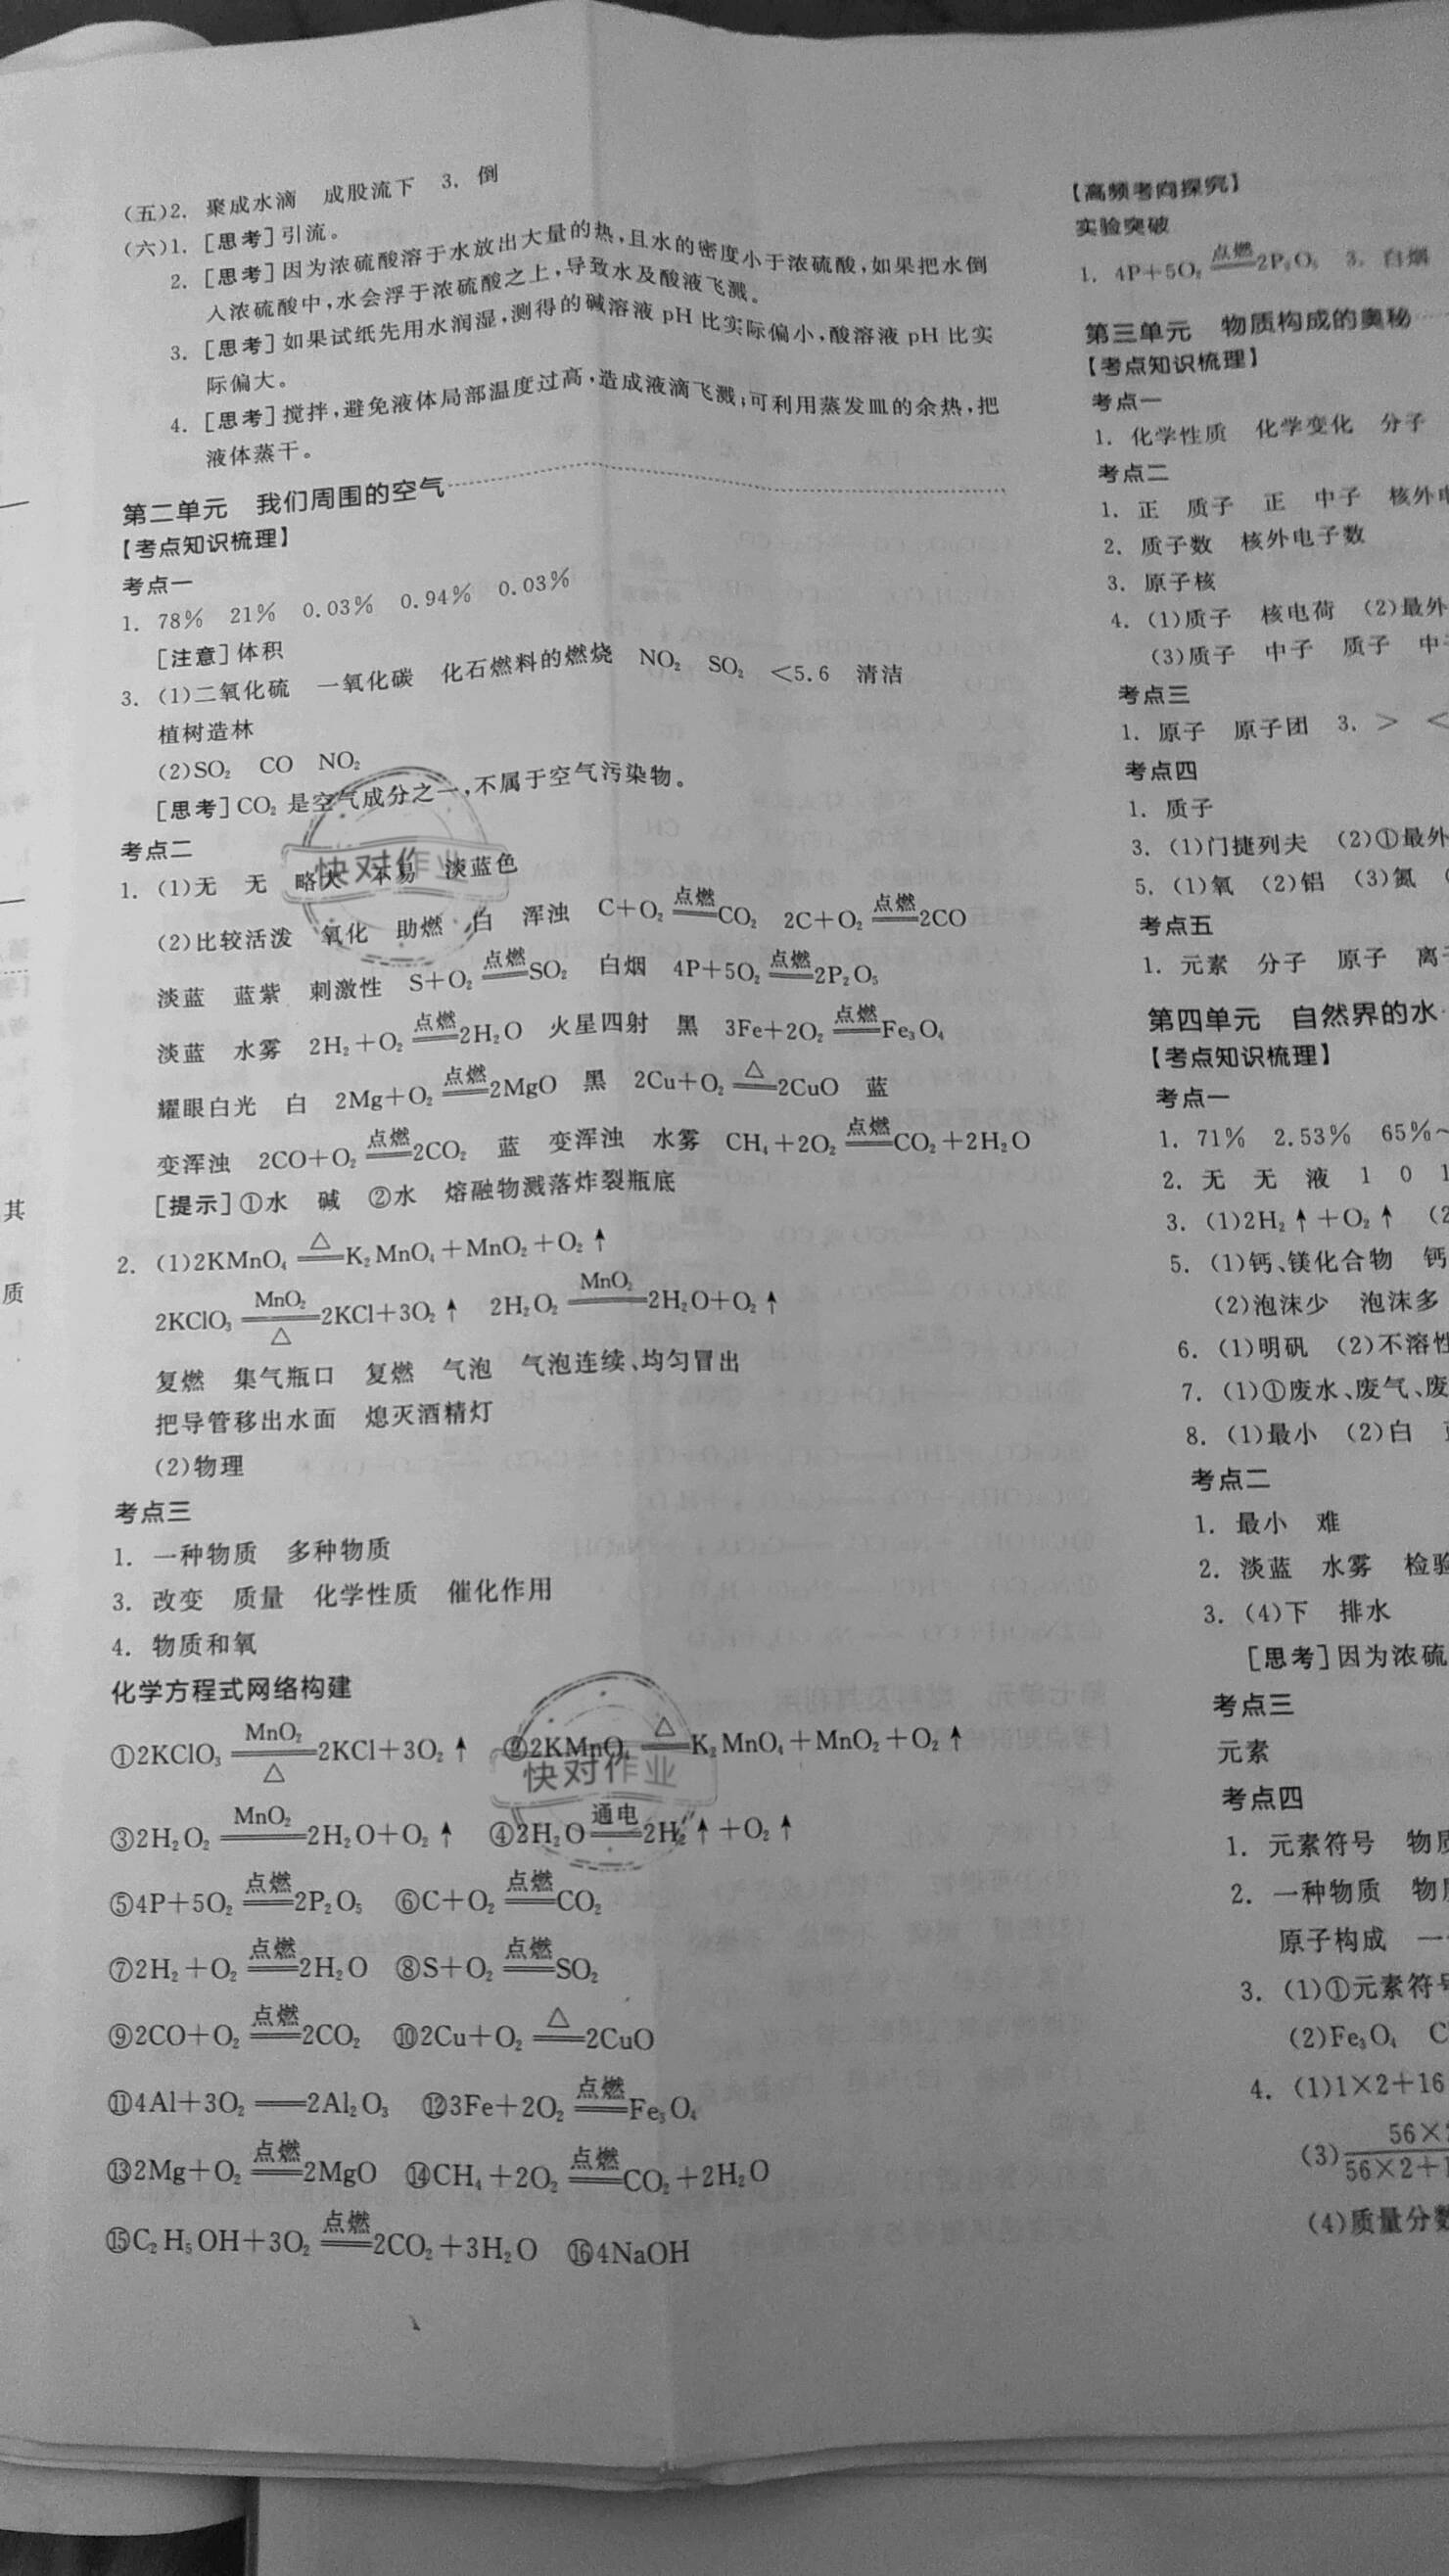 (五)2. 聚成水滴 成股流下 3. 倒
(六)1. [思考]引流。
2. [思考]因为浓硫酸溶于水放出大量的热,且水的密度小于浓硫酸,如果把水倒
入浓硫酸中,水会浮于浓硫酸之上,导致水及酸液飞溅。
3. [思考]如果试纸先用水润湿,测得的碱溶液 pH 比实际偏小,酸溶液 pH 比实
际偏大。
4. [思考]搅拌,避免液体局部温度过高,造成液滴飞溅;可利用蒸发皿的余热,把
液体蒸干。
第二单元 我们周围的空气
【考点知识梳理】
考点一
1. 78% 21% 0.03% 0.94% 0.03%
[注意]体积
3. (1)二氧化硫 一氧化碳 化石燃料的燃烧 NO₂ SO₂ <5.6 清洁
植树造林
(2)SO₂ CO NO₂
[思考]CO₂ 是空气成分之一,不属于空气污染物。
考点二
快对作业
1. (1)无 无 略大 不易 淡蓝色
(2)比较活泼 氧化 助燃 白 浑浊 C+O₂ 点燃══ CO₂ 2C+O₂ 点燃══ 2CO
淡蓝 蓝紫 刺激性 S+O₂ 点燃══ SO₂ 白烟 4P+5O₂ 点燃══ 2P₂O₅
淡蓝 水雾 2H₂+O₂ 点燃══ 2H₂O 火星四射 黑 3Fe+2O₂ 点燃══ Fe₃O₄
耀眼白光 白 2Mg+O₂ 点燃══ 2MgO 黑 2Cu+O₂ △══ 2CuO 蓝
变浑浊 2CO+O₂ 点燃══ 2CO₂ 蓝 变浑浊 水雾 CH₄+2O₂ 点燃══ CO₂+2H₂O
[提示]①水 碱 ②水 熔融物溅落炸裂瓶底
2. (1)2KMnO₄ △══ K₂MnO₄+MnO₂+O₂↑
2KClO₃ MnO₂══△ 2KCl+3O₂↑ 2H₂O₂ MnO₂══ 2H₂O+O₂↑
复燃 集气瓶口 复燃 气泡 气泡连续、均匀冒出
把导管移出水面 熄灭酒精灯
(2)物理
考点三
1. 一种物质 多种物质
3. 改变 质量 化学性质 催化作用
4. 物质和氧
化学方程式网络构建
①2KClO₃ MnO₂══△ 2KCl+3O₂↑ ②2KMnO₄ △══ K₂MnO₄+MnO₂+O₂↑
快对作业
③2H₂O₂ MnO₂══ 2H₂O+O₂↑ ④2H₂O 通电══ 2H₂↑+O₂↑
⑤4P+5O₂ 点燃══ 2P₂O₅ ⑥C+O₂ 点燃══ CO₂
⑦2H₂+O₂ 点燃══ 2H₂O ⑧S+O₂ 点燃══ SO₂
⑨2CO+O₂ 点燃══ 2CO₂ ⑩2Cu+O₂ △══ 2CuO
⑪4Al+3O₂ ══ 2Al₂O₃ ⑫3Fe+2O₂ 点燃══ Fe₃O₄
⑬2Mg+O₂ 点燃══ 2MgO ⑭CH₄+2O₂ 点燃══ CO₂+2H₂O
⑮C₂H₅OH+3O₂ 点燃══ 2CO₂+3H₂O ⑯4NaOH
其
质
【高频考向探究】
实验突破
1. 4P+5O₂ 点燃══ 2P₂O₅ 3. 白烟
第三单元 物质构成的奥秘
【考点知识梳理】
考点一
1. 化学性质 化学变化 分子
考点二
1. 正 质子 正 中子 核外
2. 质子数 核外电子数
3. 原子核
4. (1)质子 核电荷 (2)最外
(3)质子 中子 质子 中
考点三
1. 原子 原子团 3. > <
考点四
1. 质子
3. (1)门捷列夫 (2)①最外
5. (1)氧 (2)铝 (3)氮
考点五
1. 元素 分子 原子 离
第四单元 自然界的水
【考点知识梳理】
考点一
1. 71% 2.53% 65%~
2. 无 无 液 1 0
3. (1)2H₂↑+O₂↑
5. (1)钙、镁化合物 钙
(2)泡沫少 泡沫多
6. (1)明矾 (2)不溶性
7. (1)①废水、废气、废
8. (1)最小 (2)白
考点二
1. 最小 难
2. 淡蓝 水雾 检验
3. (4)下 排水
[思考]因为浓硫
考点三
元素
考点四
1. 元素符号 物质
2. 一种物质 物
原子构成 一
3. (1)①元素符号
(2)Fe₃O₄ C
4. (1)1×2+16
(3) 56× / 56×2+
(4)质量分数